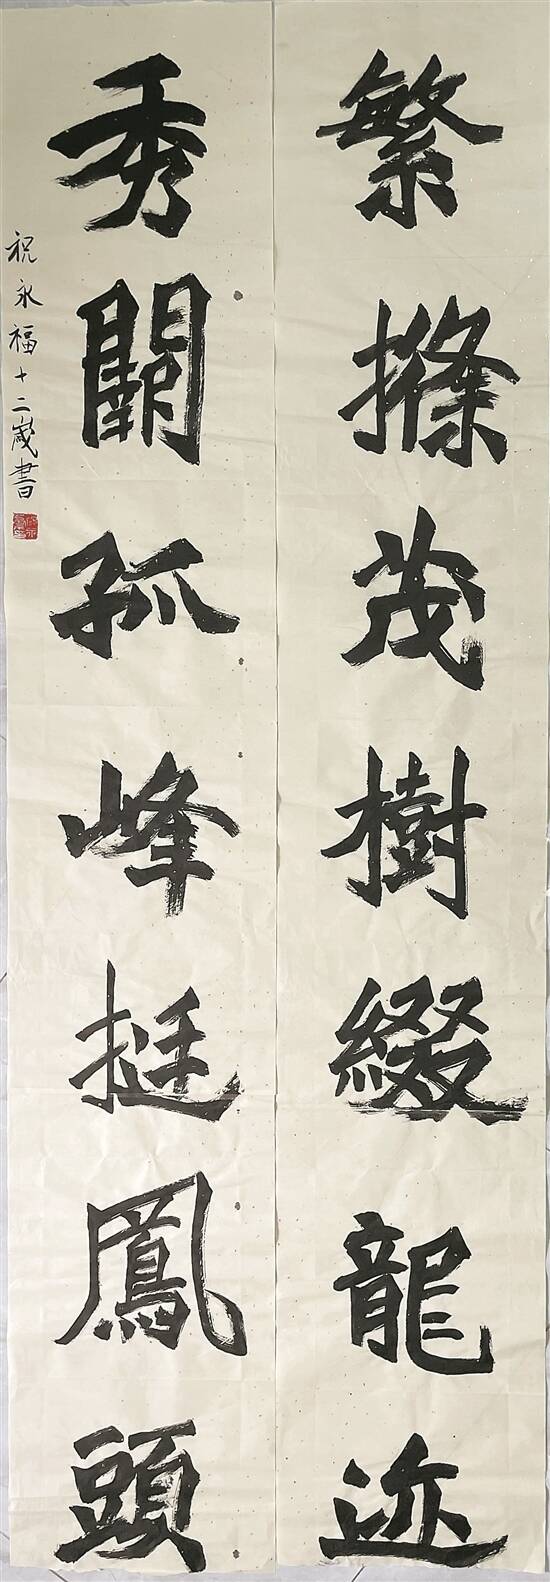 繁搽茂樹綴龍迹
秀闢孤峰挺鳳頭
祝永福十二歲書